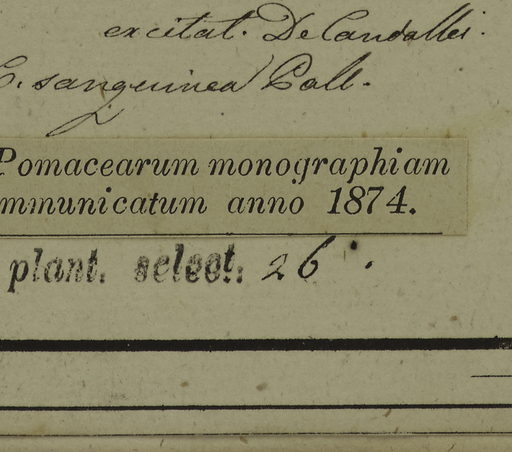 excitat. DeCandollei.
C. sanguinea Pall.
Pomacearum monographiam
mmunicatum anno 1874.
plant. select. 26.